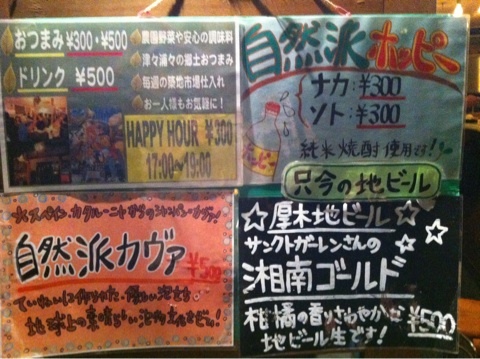 おつまみ ¥300・¥500
ドリンク ¥500
農園野菜や安心の調味料
津々浦々の郷土おつまみ
毎週の築地市場仕入れ
お一人様もお気軽に！
HAPPY HOUR ¥300
17:00~19:00
自然派ホッピー
ナカ：¥300
ソト：¥300
純米焼酎使用です！
ホッピー
只今の地ビール
自然派カヴァ
¥500
ていねいに作りった
地球上の素晴らしい
☆厚木地ビール☆
サンクトガーレンさんの
湘南ゴールド
柑橘の香りさわやかな ¥500
地ビール生です！